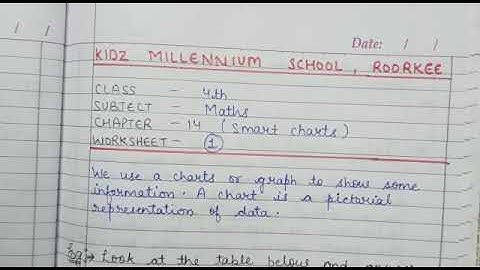 / /
Date: / /
KIDZ MILLENNIUM SCHOOL, ROORKEE
CLASS - 4th
SUBJECT - Maths
CHAPTER - 14 (Smart charts)
WORKSHEET - 1
We use a charts or graph to show some
information. A chart is a pictorial
representation of data.
Eg:→ Look at the table below and